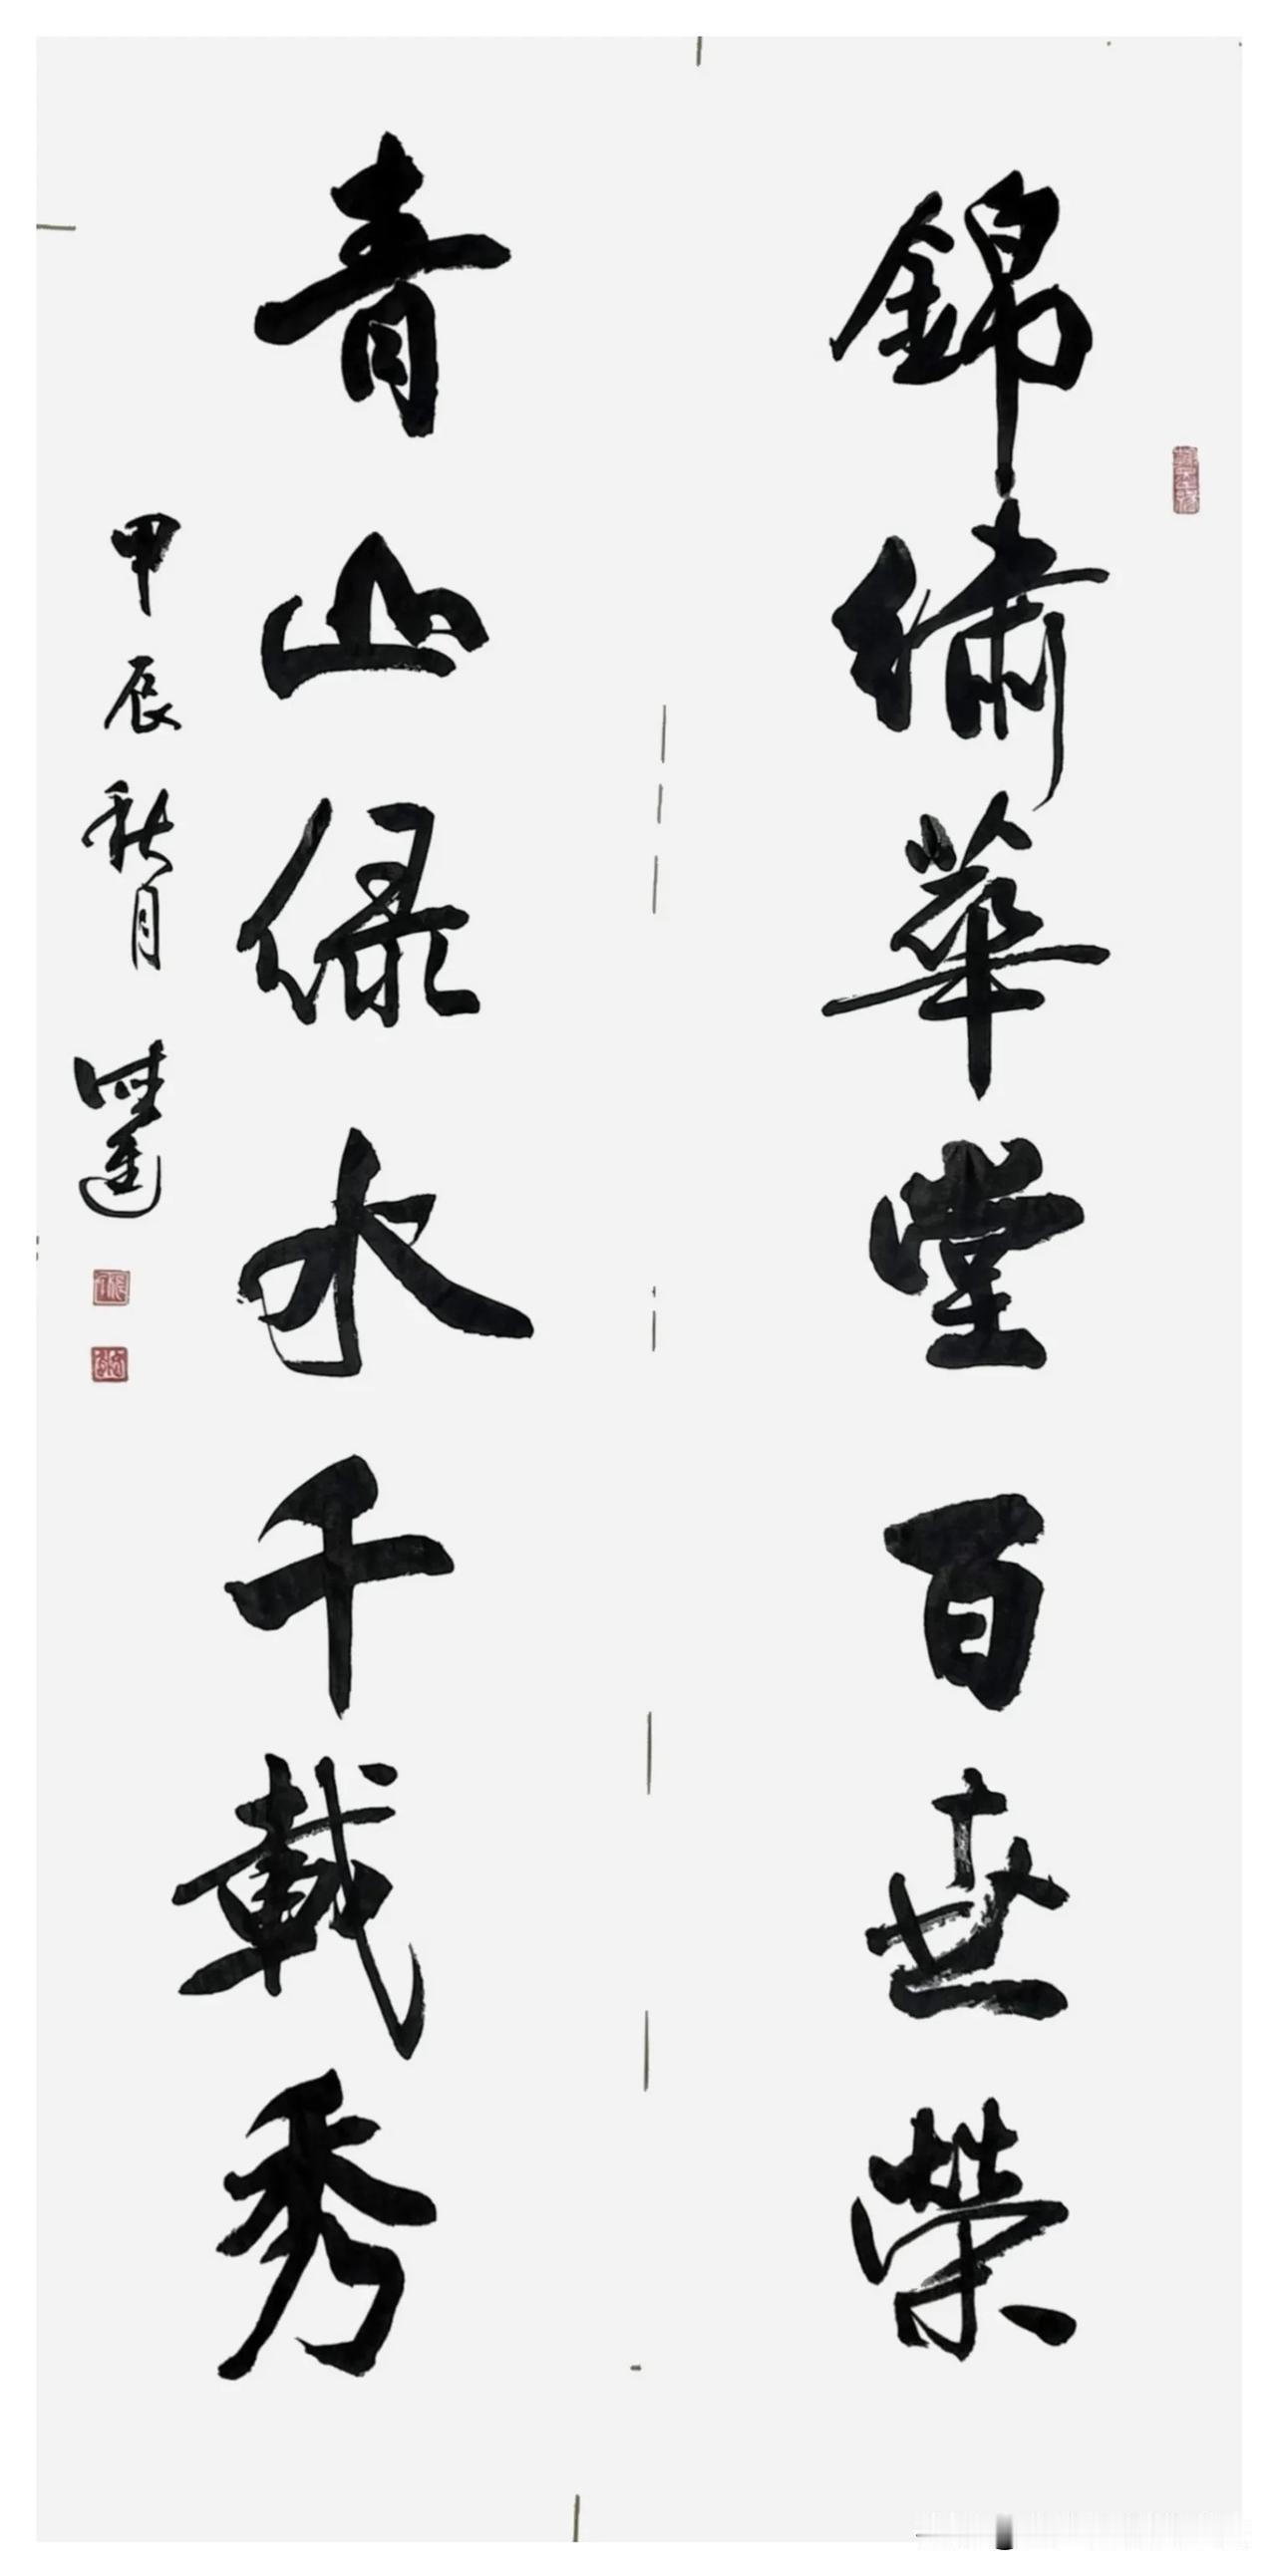 錦繡華堂百世榮
青山绿水千載秀
甲辰秋月